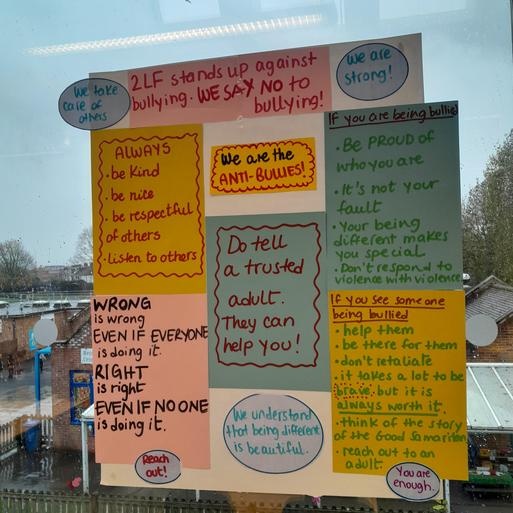 We take
care of
others
2LF stands up against
bullying. WE SAY NO to
bullying!
We are
strong!
ALWAYS
• be Kind
• be nice
• be respectful
of others
• listen to others
We are the
ANTI-BULLIES!
If you are being bullied
• Be PROUD of
who you are
• It's not your
fault
• Your being
different makes
you special
• Don't respond to
violence with violence
Do tell
a trusted
adult.
They can
help you!
WRONG
is wrong
EVEN IF EVERYONE
is doing it.
RIGHT
is right
EVEN IF NO ONE
is doing it.
If you see some one
being bullied
• help them
• be there for them
• don't retaliate
• it takes a lot to be
brave, but it is
always worth it.
• think of the story
of the Good Samaritan
• reach out to an
adult.
Reach
out!
We understand
that being different
is beautiful.
You are
enough.